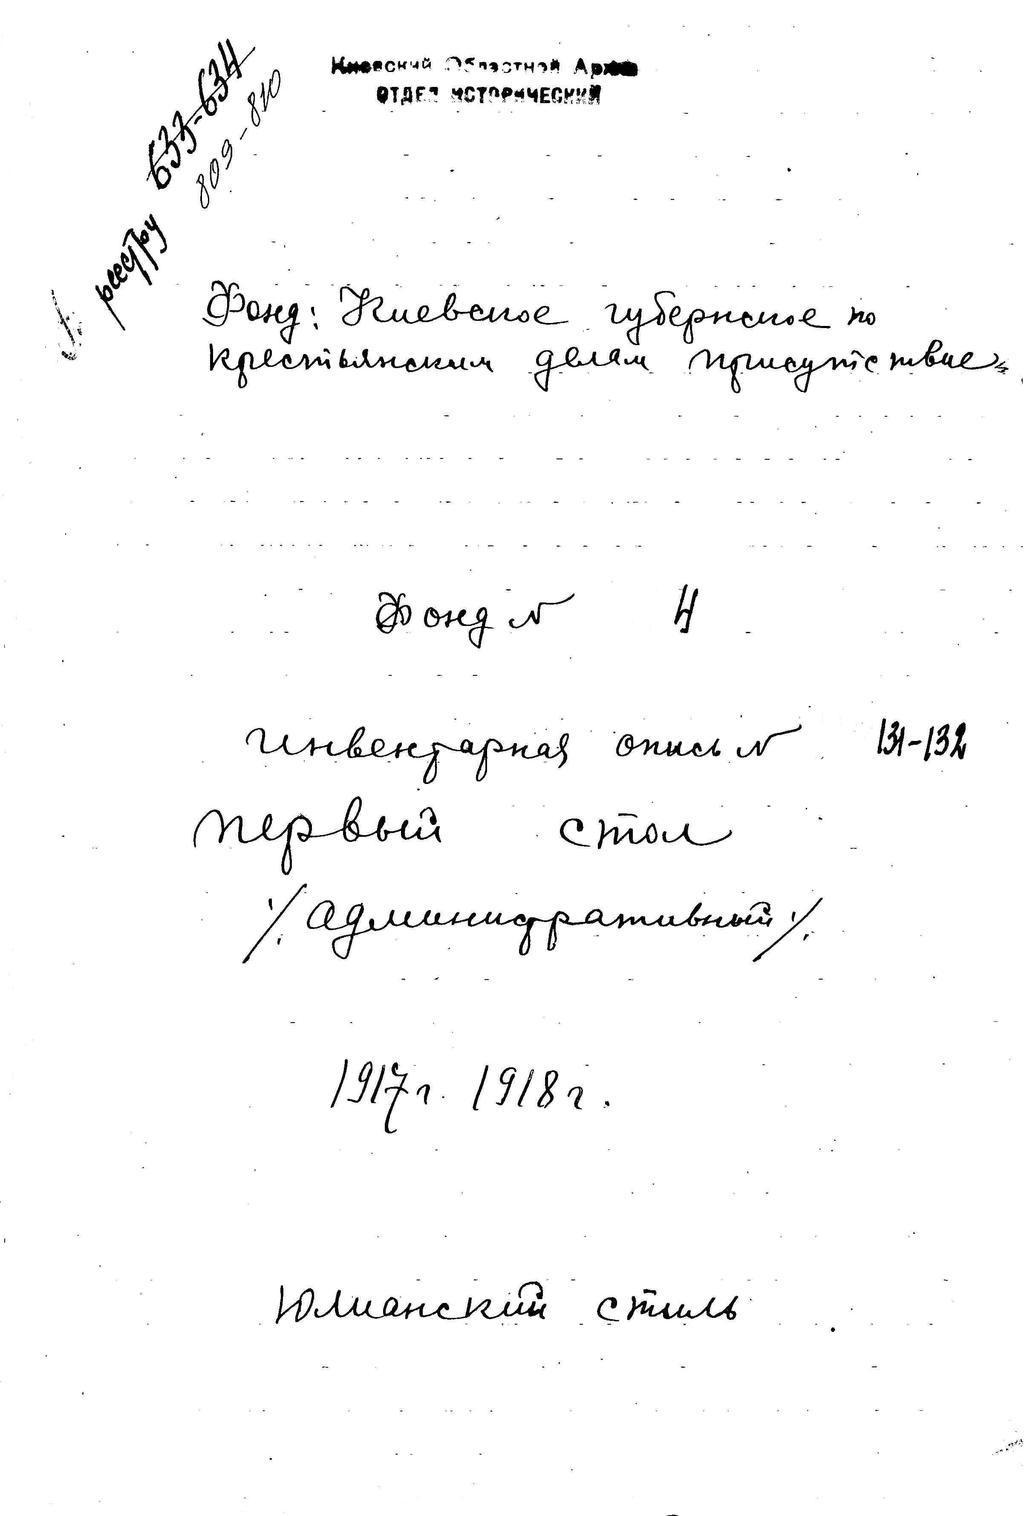 Киевский Областной Архив
ОТДЕЛ ИСТОРИЧЕСКИЙ
реестру 633-634
809-810
Фонд: Киевское губернское по
крестьянским делам присутствие
Фонд № 4
инвентарная опись № 131-132
первый стол
/административный/
1917 г. 1918 г.
Юлианский стиль